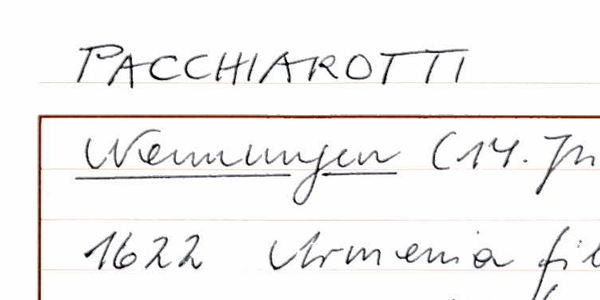 PACCHIAROTTI
Nennungen (14. Jh
1622 Armenia fil